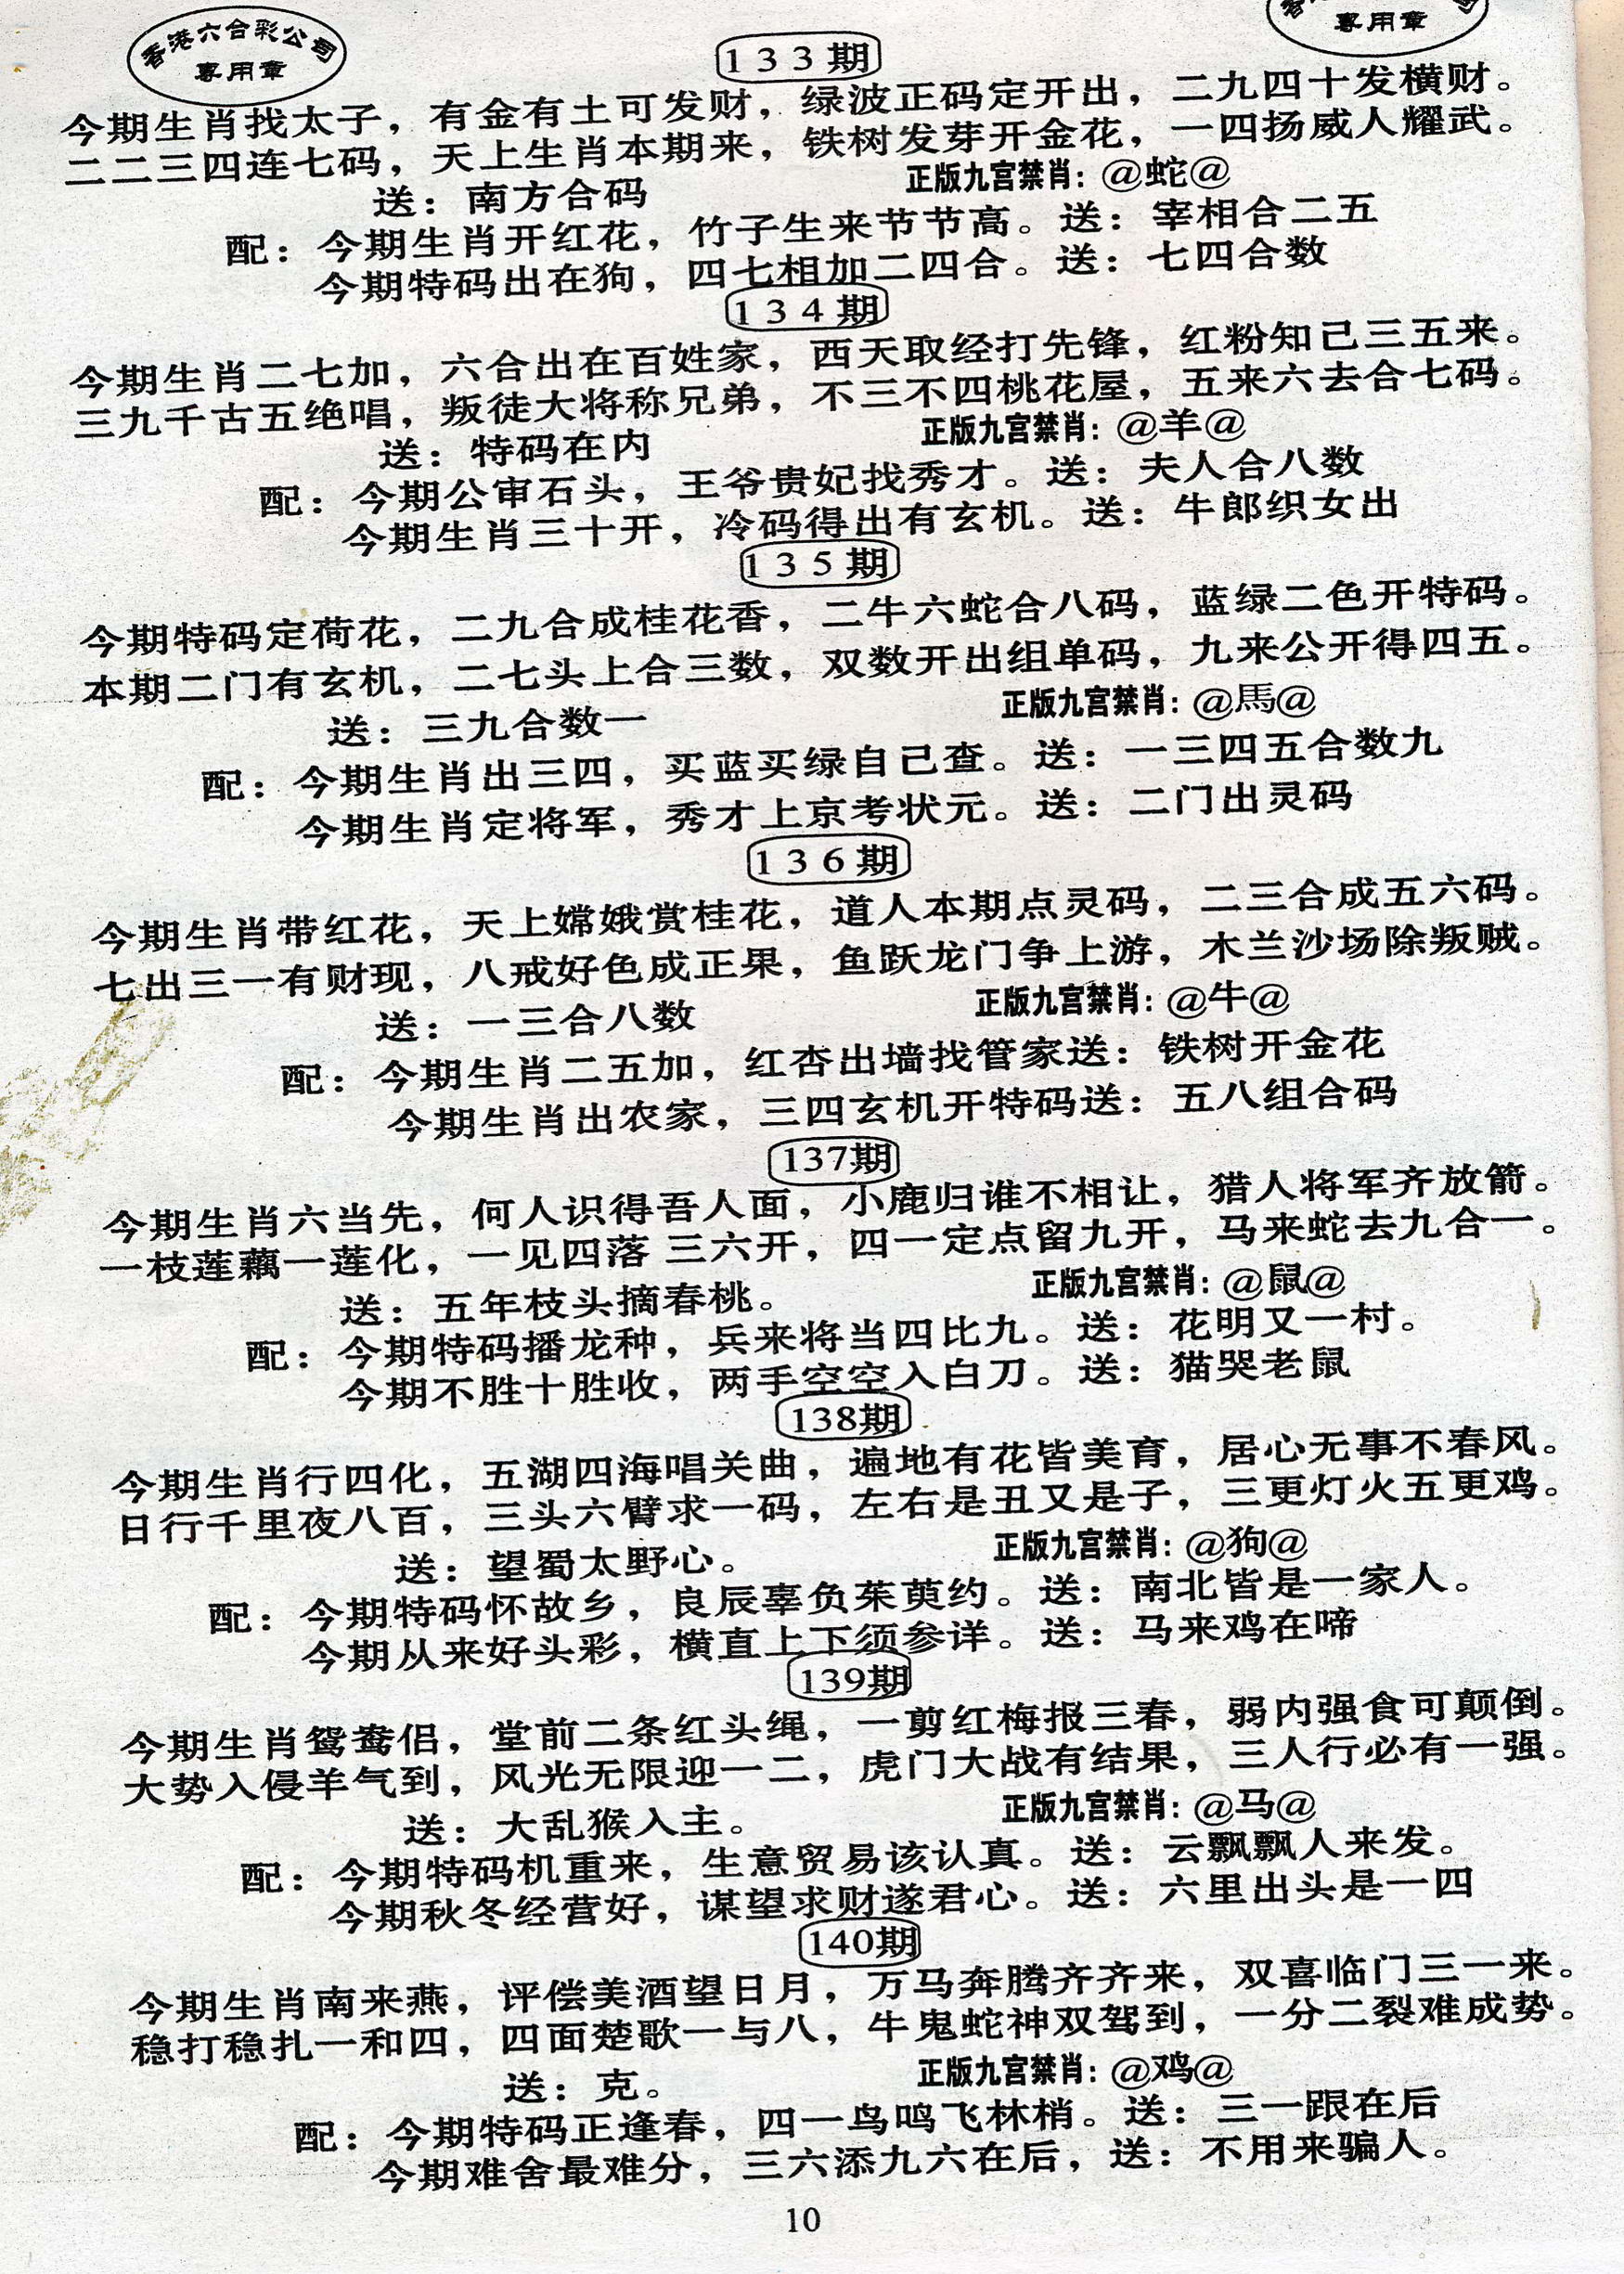 香港六合彩公司
專用章
專用章
133期
今期生肖找太子，有金有土可发财，绿波正码定开出，二九四十发横财。
二二三四连七码，天上生肖本期来，铁树发芽开金花，一四扬威人耀武。
送：南方合码 正版九宫禁肖：@蛇@
配：今期生肖开红花，竹子生来节节高。送：宰相合二五
今期特码出在狗，四七相加二四合。送：七四合数
134期
今期生肖二七加，六合出在百姓家，西天取经打先锋，红粉知己三五来。
三九千古五绝唱，叛徒大将称兄弟，不三不四桃花屋，五来六去合七码。
送：特码在内 正版九宫禁肖：@羊@
配：今期公审石头，王爷贵妃找秀才。送：夫人合八数
今期生肖三十开，冷码得出有玄机。送：牛郎织女出
135期
今期特码定荷花，二九合成桂花香，二牛六蛇合八码，蓝绿二色开特码。
本期二门有玄机，二七头上合三数，双数开出组单码，九来公开得四五。
送：三九合数一 正版九宫禁肖：@馬@
配：今期生肖出三四，买蓝买绿自己查。送：一三四五合数九
今期生肖定将军，秀才上京考状元。送：二门出灵码
136期
今期生肖带红花，天上嫦娥赏桂花，道人本期点灵码，二三合成五六码。
七出三一有财现，八戒好色成正果，鱼跃龙门争上游，木兰沙场除叛贼。
送：一三合八数 正版九宫禁肖：@牛@
配：今期生肖二五加，红杏出墙找管家送：铁树开金花
今期生肖出农家，三四玄机开特码送：五八组合码
137期
今期生肖六当先，何人识得吾人面，小鹿归谁不相让，猎人将军齐放箭。
一枝莲藕一莲化，一见四落 三六开，四一定点留九开，马来蛇去九合一。
送：五年枝头摘春桃。 正版九宫禁肖：@鼠@
配：今期特码播龙种，兵来将当四比九。送：花明又一村。
今期不胜十胜收，两手空空入白刀。送：猫哭老鼠
138期
今期生肖行四化，五湖四海唱关曲，遍地有花皆美育，居心无事不春风。
日行千里夜八百，三头六臂求一码，左右是丑又是子，三更灯火五更鸡。
送：望蜀太野心。 正版九宫禁肖：@狗@
配：今期特码怀故乡，良辰辜负茱萸约。送：南北皆是一家人。
今期从来好头彩，横直上下须参详。送：马来鸡在啼
139期
今期生肖鸳鸯侣，堂前二条红头绳，一剪红梅报三春，弱内强食可颠倒。
大势入侵羊气到，风光无限迎一二，虎门大战有结果，三人行必有一强。
送：大乱猴入主。 正版九宫禁肖：@马@
配：今期特码机重来，生意贸易该认真。送：云飘飘人来发。
今期秋冬经营好，谋望求财遂君心。送：六里出头是一四
140期
今期生肖南来燕，评偿美酒望日月，万马奔腾齐齐来，双喜临门三一来。
稳打稳扎一和四，四面楚歌一与八，牛鬼蛇神双驾到，一分二裂难成势。
送：克。 正版九宫禁肖：@鸡@
配：今期特码正逢春，四一鸟鸣飞林梢。送：三一跟在后
今期难舍最难分，三六添九六在后，送：不用来骗人。
10